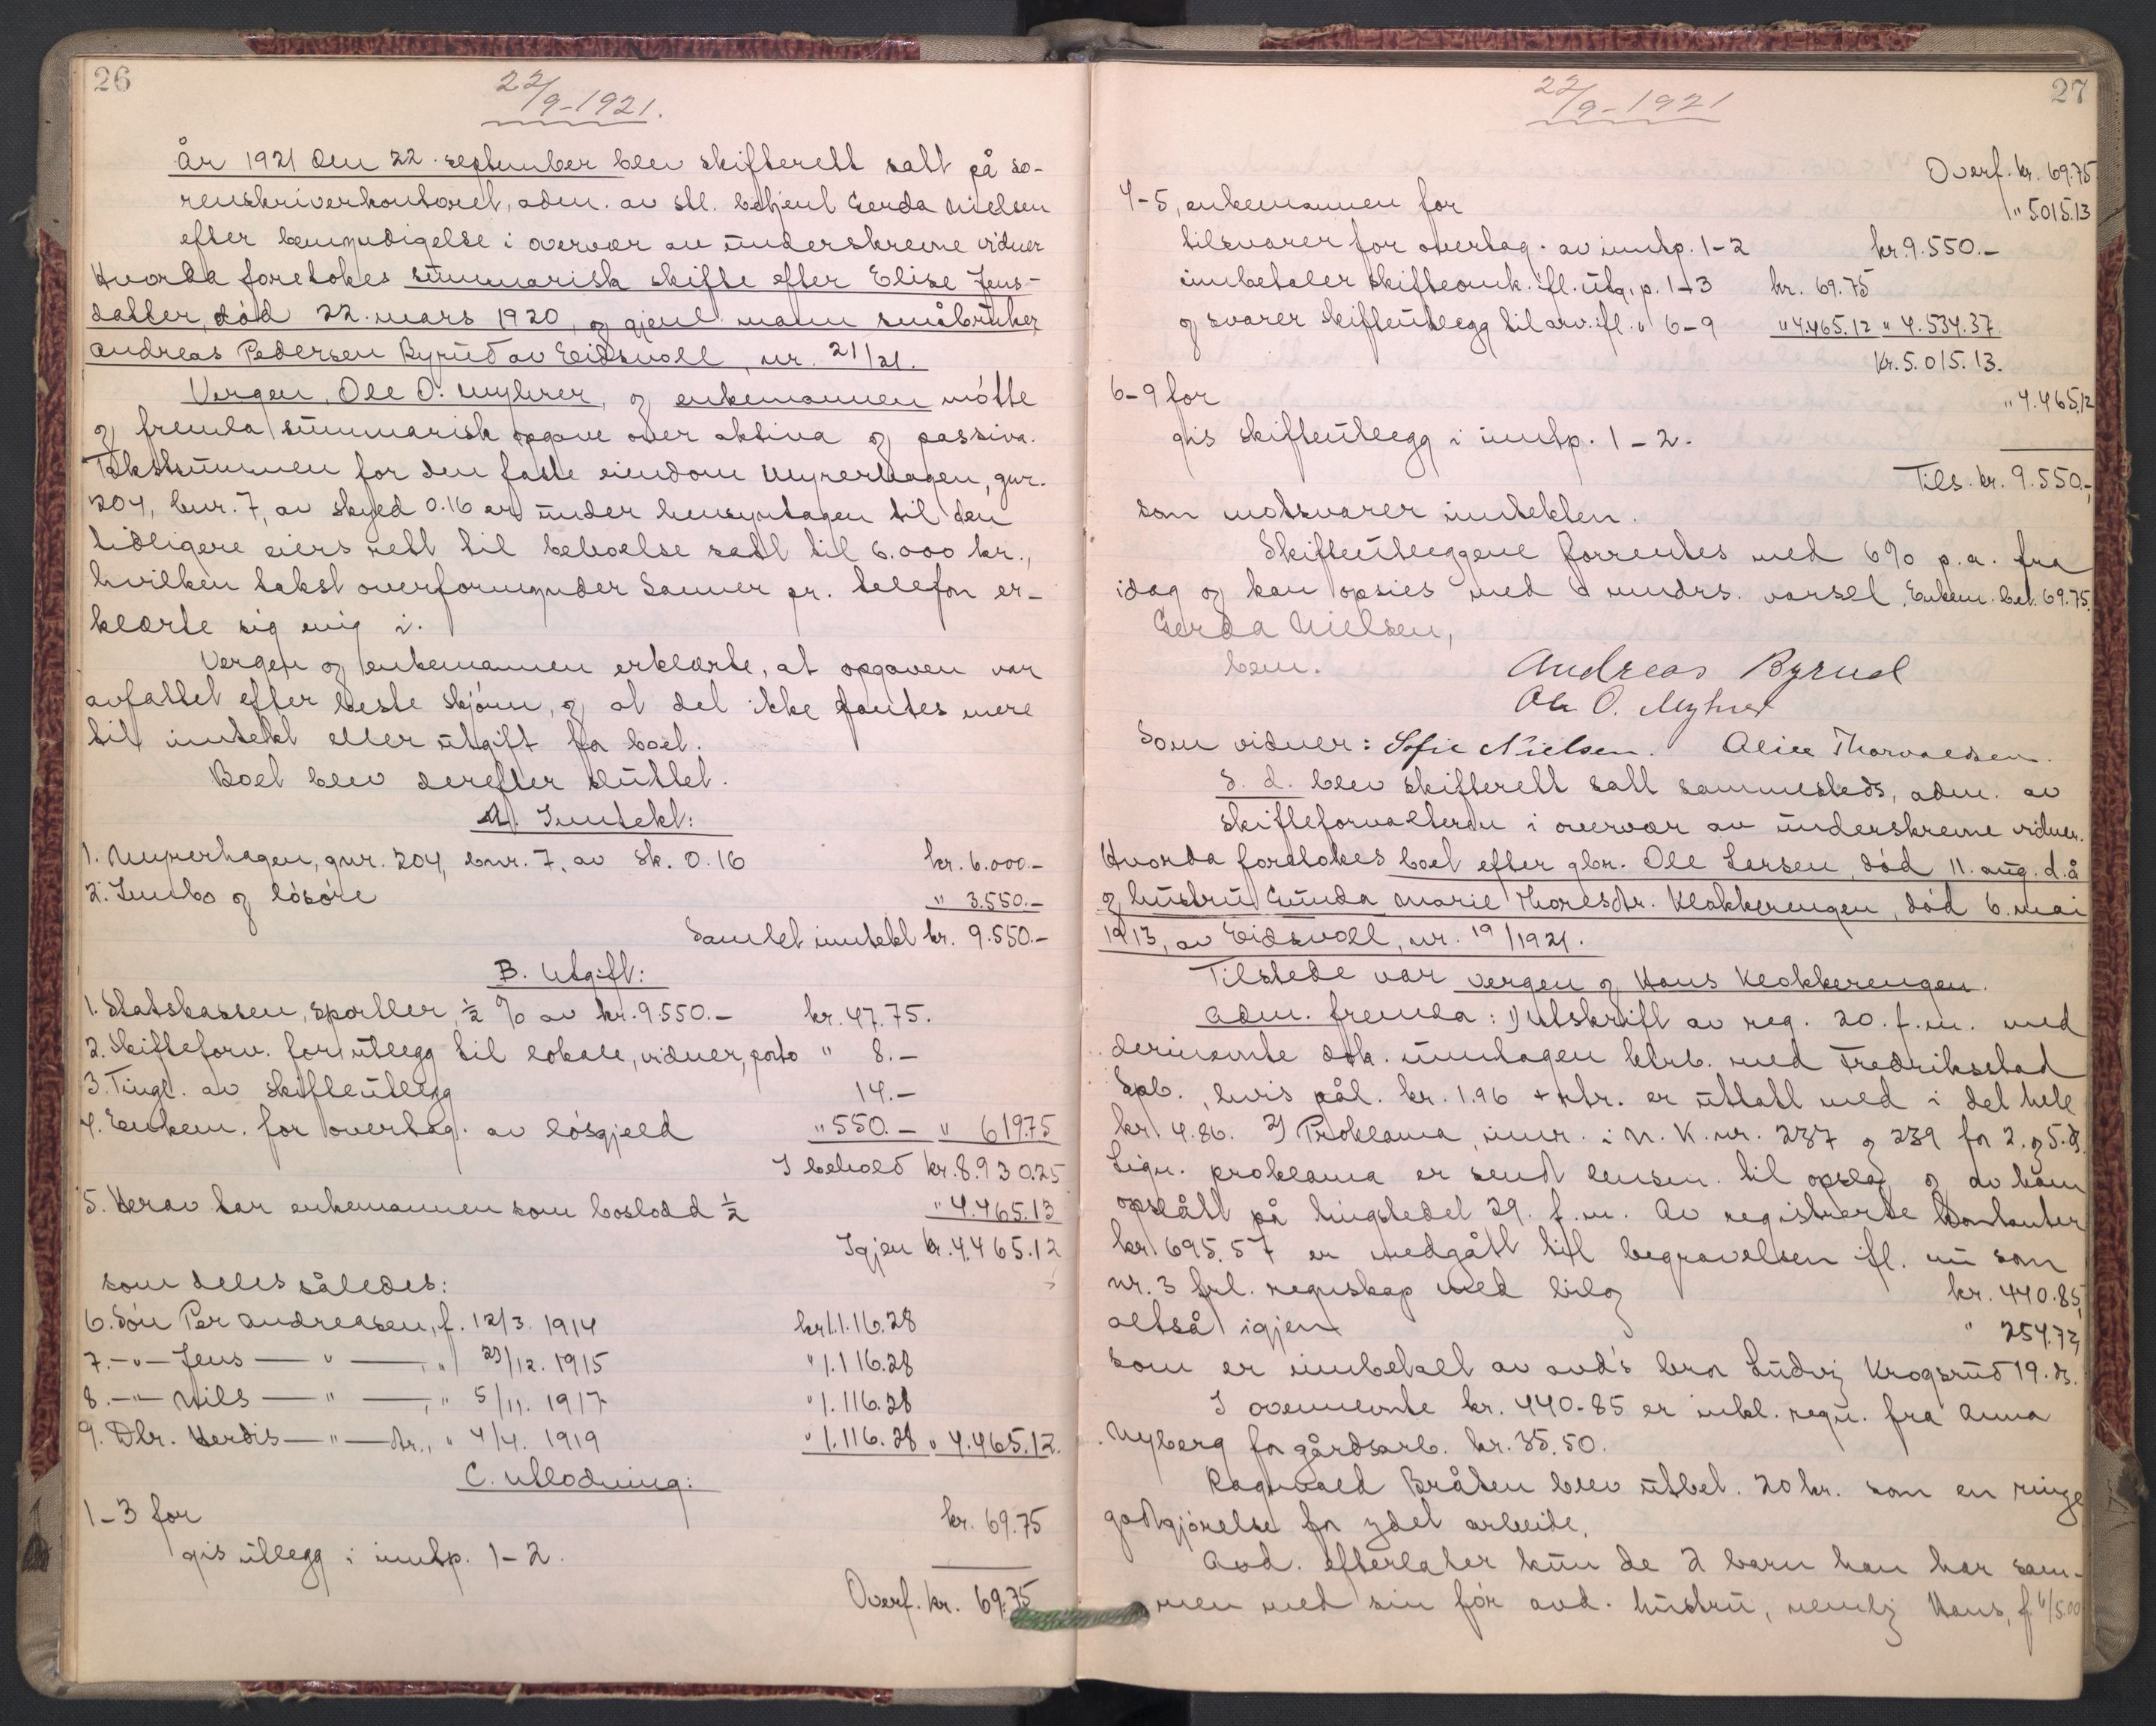 26
22/9-1921.
År 1921 den 22. september blev skifterett satt på so-
renskriverkontoret, adm. av stl. betjent Gerda Nielsen
efter bemyndigelse i overvær av underskrevne vidner
Hvorda foretokes summarisk skifte efter Elise Jens-
datter, død 22. mars 1920, og gjenl. mann småbruker
Andreas Pedersen Byrud av Eidsvoll, nr. 21/21.
Vergen, Ole O. Myhrer, og enkemannen møtte
og fremla summarisk opgave over aktiva og passiva.
Takstsummen for den faste eiendom Myrerhagen, gnr.
204, bnr. 7, av skyld 0.16 er under hensyntagen til den
tidligere eiers rett til beboelse satt til 6.000 kr.,
hvilken takst overformynder Sanner pr. telefon er-
klærte sig enig i.
Vergen og enkemannen erklærte, at opgaven var
avfattet efter beste skjønn, og at det ikke fantes mere
til inntekt eller utgift for boet.
Boet blev derefter sluttet.
A. Inntekt:
1. Myrerhagen, gnr. 204, bnr. 7, av sk. 0.16 kr. 6.000.-
2. Innbo og løsøre " 3.550.-
Samlet inntekt kr. 9.550.-
B. Utgift:
1. Statskassen, sportler, ½ % av kr. 9.550.- kr. 47.75.
2. Skifteforv. for utlegg til lokale, vidner, porto " 8.-
3. Tingl. av skifteutlegg 14.-
4. Enkem. for overtag. av løsgjeld " 550.- " 619.75
I behold kr. 8.930.25
5. Herav tar enkemannen som boslodd ½ " 4.465.13
Igjen kr. 4.465.12
som deles således:
6. Søn Per Andreasen, f. 12/3. 1914 kr. 1.116.28
7. -"- Jens -"-, " 29/12. 1915 " 1.116.28
8. -"- Nils -"-, " 5/11. 1917 " 1.116.28
9. Dtr. Herdis -"- dtr., " 4/4. 1919 " 1.116.28 " 4.465.12.
C. Utlodning:
1-3 for kr. 69.75
gis utlegg i inntp. 1-2.
Overf. kr. 69.75
27
22/9-1921
Overf. kr. 69.75
4-5, enkemannen for " 5015.13
tilsvarer for overtag. av inntp. 1-2 kr. 9.550.-
innbetaler skifteomk. ifl. utg. p. 1-3 kr. 69.75
og svarer skifteutlegg til arv. ifl. " 6-9 " 4.465.12 " 4.534.37
Kr. 5.015.13.
6-9 for " 4.465.12
gis skifteutlegg i inntp. 1-2.
Tils. kr. 9.550.-,
som motsvarer inntekten.
Skifteutleggene forrentes med 6% p.a. fra
idag og kan opsies med mndrs. varsel. Enkem. bet. 69.75.
Gerda Nielsen,
bem.
Andreas Byrud
Ole O. Myhrer
Som vidner: Sofie Nielsen. Alice Thorvaldsen.
S. d. blev skifterett satt sammesteds, adm. av
skifteforvalteren i overvær av underskrevne vidner.
Hvorda foretokes boet efter gbr. Ole Larsen, død 11. aug. d.å
og hustru Gunda Marie Thoresdtr. Klokkerengen, død 6. mai
1913, av Eidsvoll, nr. 19/1921.
Tilstede var vergen og Hans Klokkerengen.
Adm. fremla: 1) Utskrift av reg. 20. f.m. med
derinevnte dok. unntagen ktrb. med Fredrikstad
Spb., hvis pål. kr. 1.96 + rtr. er uttatt med i det hele
kr. 4.86. 2) Proklama, innr. i N.K. nr. 237 og 239 for 2. og 5. ds.
Lign. proklama er sendt lensm. til opslag og av ham
opslått på tingstedet 29. f.m. Av registrerte kontanter
kr. 695.57 er medgått til begravelsen ifl. nu som
nr. 3 frl. regnskap med bilag kr. 440.85,
altså igjen " 254.72,
som er innbetalt av avd's bror Ludvig Krogsrud 19. ds.
I ovennevnte kr. 440.85 er inkl. regn. fra Anna
Nyberg for gårdsarb. kr. 35.50.
Ragnvald Bråten blev utbet. 20 kr. som en ringe
godtgjørelse for ydet arbeide.
Avd. efterlater kun de 2 barn han har sam-
men med sin før avd. hustru, nemlig Hans, f.